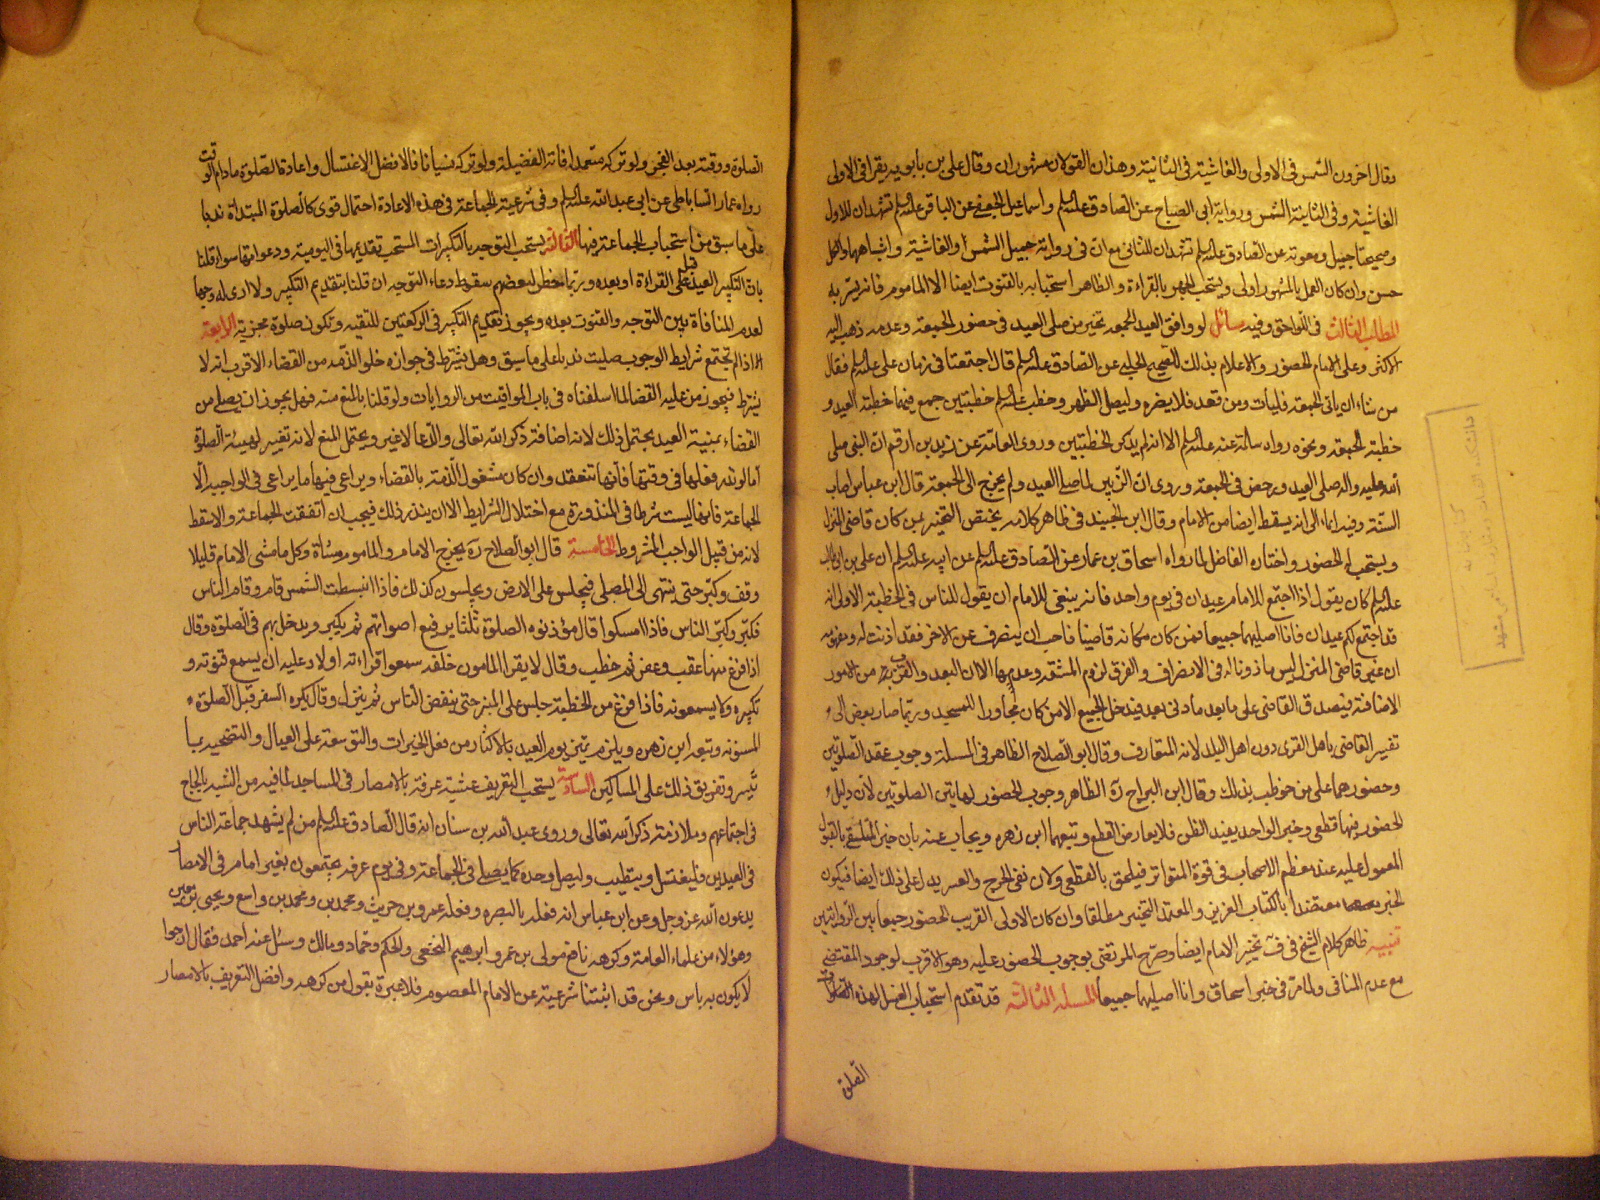 وقال اخرون الشمس فى الاولى والغاشية فى الثانية وهذان القولان مشهوران وقال على بن بابويه يقرا فى الاولى
الغاشية وفى الثانية الشمس ورواية ابى الصباح عن الصادق علیه السلم واسماعيل الجعفى عن الباقر علیه السلم تشهدان للاول
وصحيحتا جميل ومعوية عن الصادق علیه السلم تشهدان للثانى مع ان فى رواية جميل الشمس والغاشية واشباههما والكل
حسن وان كان العمل بالمشهور اولى ويستحب الجهر بالقراءة والظاهر استحبابه بالقنوت ايضا الا الماموم فانه يسر به
المطلب الثالث فى اللواحق وفيه مسائل لو وافق العيد الجمعة تخير من صلى العيد فى حضور الجمعة وعدمه ذهب اليه
الاكثر وعلى الامام الحضور والاعلام بذلك للصحيح الحلبى عن الصادق علیه السلم قال اجتمعتا فى زمان على علیه السلم فقال
من شاء ان ياتى الجمعة فليات ومن قعد فلا يضره وليصل الظهر وخطب علیه السلم خطبتين جمع فيهما خطبة العيد و
خطبة الجمعة ونحوه رواه سلمة عنه علیه السلم الا انه لم يذكر الخطبتين وروى العامة عن زيد بن ارقم ان النبى صلى
الله عليه واله صلى العيد ورخص فى الجمعة وروى ان ابن الزبير لما صلى العيد ولم يخرج الى الجمعة قال ابن عباس اصاب
السنة وفيه ايماء الى انه يسقط ايضا من الامام وقال ابن الجنيد فى ظاهر كلامه يختص التخير بمن كان قاصى المنزل
ويستحب له الحضور واختاره الفاضل لما رواه اسحاق بن عمار عن الصادق علیه السلم عن ابيه علیه السلم ان على بن ابى طالب
علیه السلم كان يقول اذا اجتمع للامام عيدان فى يوم واحد فانه ينبغى للامام ان يقول للناس فى الخطبة الاولى انه
قد اجتمع لكم عيدان فانا اصليهما جميعا فمن كان مكانه قاصيا فاحب ان ينصرف عن الاخر فقد اذنت له ومفهومه
ان غير قاصى المنزل ليس ماذونا له فى الانصراف والفرق لزوم المشقة وعدمها الا ان البعد والقرب من الامور
الاضافية فيصدق القاصى على ما بعد مادنى بعد فيدخل الجميع الا من كان مجاورا للمسجد وربما صار بعض الى
تفسير القاصى باهل القرى دون اهل البلد لانه المتعارف وقال ابو الصلاح الظاهر فى المسئلة وجوب عقد الصلوتين
وحضورهما على من خوطب بذلك وقال ابن البراج ره الظاهر وجوب الحضور لهاتين الصلوتين لان دليل
الحضور فيها قطعى وخبر الواحد يفيد الظن فلا يعارض القطع وتبعهما ابن زهره ويجاب عنه بان خبر المتلقى بالقبول
المعمول عليه عند معظم الاصحاب فى قوة المتواتر فيلحق بالقطعى ولان نفى الحرج والعسر يدل على ذلك ايضا فيكون
الخبر معتضدا بالكتاب العزيز والمعتمد التخيير مطلقا وان كان الاولى القريب الحضور جمعا بين الروايتين
تنبيه ظاهر كلام الشيخ فى ف تخيير الامام ايضا وصرح المرتضى بوجوب الحضور عليه وهو الاقرب لوجود المقتضى
مع عدم المنافى ولما مر فى خبر اسحاق وانا اصليهما جميعا المسئلة الثالثة قد تقدم استحباب الغسل لهذه الصلوات
الصلوة
الصلوة ووقته بعد الفجر ولو تركه متعمدا فاتته الفضيلة ولو تركه نسيانا فالافضل الاغتسال واعادة الصلوة مادام الوقت
رواه عمار الساباطى عن ابى عبدالله علیه السلم وفى شرعية الجماعة فى هذه الاعادة احتمال قوى كالصلوة المبتداة ندبا
على ما سبق من استحباب الجماعة فيها الثالثة يستحب التوجه بالتكبيرات المستحب تقديمها فى اليومية ودعواتها سواء قلنا
بان التكبير العيد قبل القراءة او بعده وربما خطر لبعضهم سقوط دعاء التوجه ان قلنا بتقديم التكبير ولا ارى له وجها
لعدم المنافاة بين التوجه والقنوت بعده ويجوز تقديم التكبير فى الركعتين للتقيه وتكون صلوة مجزية الرابعة
اذا لم تجتمع شرايط الوجوب صليت ندبا على ما سبق وهل يشترط فى جوازه خلو الذمة من القضاء الاقرب انه لا
يشترط فيجوز من عليه القضا لما اسلفناه فى باب المواقيت من الروايات ولو قلنا بالمنع منه فهل يجوز ان يصلى من
القضاء بهيئة العيد يحتمل ذلك لانه اضافة ذكر الله تعالى والدعا لا غير ويحتمل المنع لانه تغيير لهيئة الصلوة
اما لو نذر فعلها فى وقتها فانها تنعقد وان كان مشغول الذمة بالقضاء ويراعى فيها ما يراعى فى الواجبة الا
الجماعة فانها ليست شرطا فى المنذورة مع اختلال الشرايط الا ان ينذر ذلك فيجب ان اتفقت الجماعة والا سقط
لانه من قبيل الواجب المشروط الخامسة قال ابو الصلاح ره يخرج الامام والماموم مشاة وكل ما مشى الامام قليلا
وقف وكبر حتى ينتهى الى المصلى فيجلس على الارض ويجلسون كذلك فاذا انبسطت الشمس قام وقام الناس
فكبر وكبر الناس فاذا امسكوا قال مؤذنوه الصلوة ثلثا يرفع اصواتهم ثم يكبر ويدخل بهم فى الصلوة وقال
اذا فرغ منها عقب وعفر ثم خطب وقال لا يقرا المامون خلفه سمعوا قراءته او لا وعليه ان يسمع قنوته و
تكبيره ولا يسمعونه فاذا فرغ من الخطبة جلس على المنبر حتى ينفض الناس ثم ينزل وقال يكره السفر قبل الصلوة
المسنونة وتبعه ابن زهره ويلزم تميز يوم العيد بالاكثار من فعل الخيرات والتوسعة على العيال والتضحيه بما
تيسر وتفريق ذلك على المساكين السادسة يستحب التعريف عشية عرفة بالامصار فى المساجد لما فيه من الشبه بالحاج
فى اجتماعهم وملازمة ذكر الله تعالى وروى عبد الله بن سنان انه قال الصادق علیه السلم من لم يشهد جماعة الناس
فى العيدين فليغتسل ويتطيب وليصل وحده كما يصلى فى الجماعة وفى يوم عرفه يجتمعون بغير امام فى الامصار
يدعون الله عز وجل وعن ابن عباس انه فعله بالبصره وفعله عمرو بن حريث ومحمد بن واسع ويحيى بن معين
وهؤلاء من علماء العامة وكرهه نافع مولى بن عمر وابراهيم النخعى والحكم وحماد ومالك وسئل عنه احمد فقال ارجوا
لا يكون به باس ونحن قد اثبتنا شرعيته عن الامام المعصوم فلا عبرة بقول من كرهه وافضل التعريف بالامصار